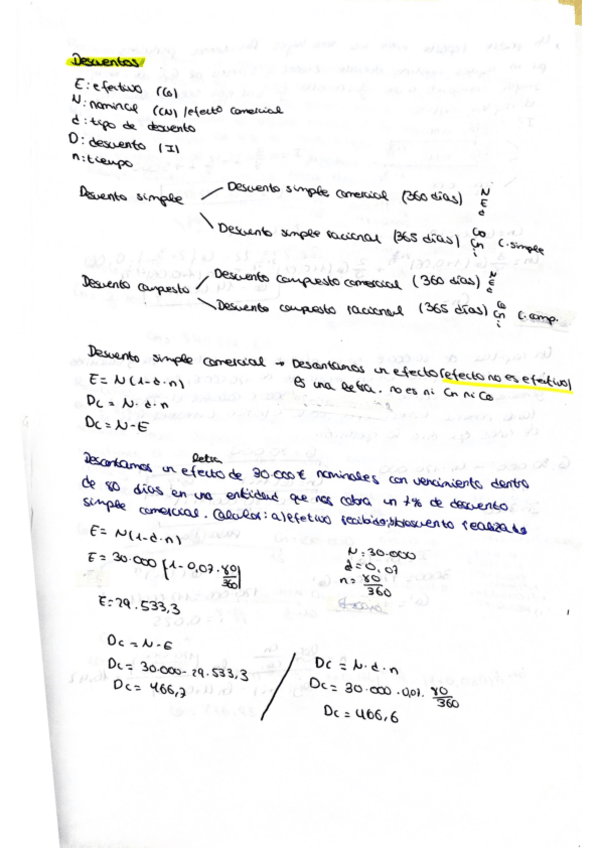 Descuentos
E: efectivo (Co)
N: nominal (CN) / efecto comercial
d: tipo de descuento
D: descuento (I)
n: tiempo
Descuento simple
Descuento simple comercial (360 días) N E d
Descuento simple racional (365 días) Co Cn i C. simple
Descuento compuesto
Descuento compuesto comercial (360 días) N E d
Descuento compuesto racional (365 días) Co Cn i C. comp.
Descuento simple comercial → Descontamos un efecto (efecto no es efectivo)
E = N (1-d·n) Es una letra. no es ni Cn ni Co
Dc = N·d·n
Dc = N-E
Letra
Descontamos un efecto de 30.000€ nominales con vencimiento dentro
de 80 días en una entidad que nos cobra un 7% de descuento
simple comercial. Calcular: a) efectivo recibido; b) descuento realizado
E = N (1-d·n)
N: 30.000
E = 30.000 [1-0,07·80/360]
d = 0,07
n = 80/360
E = 29.533,3
Dc = N-E
Dc = 30.000-29.533,3
Dc = 466,7
Dc = N·d·n
Dc = 30.000·0,07·80/360
Dc = 466,6